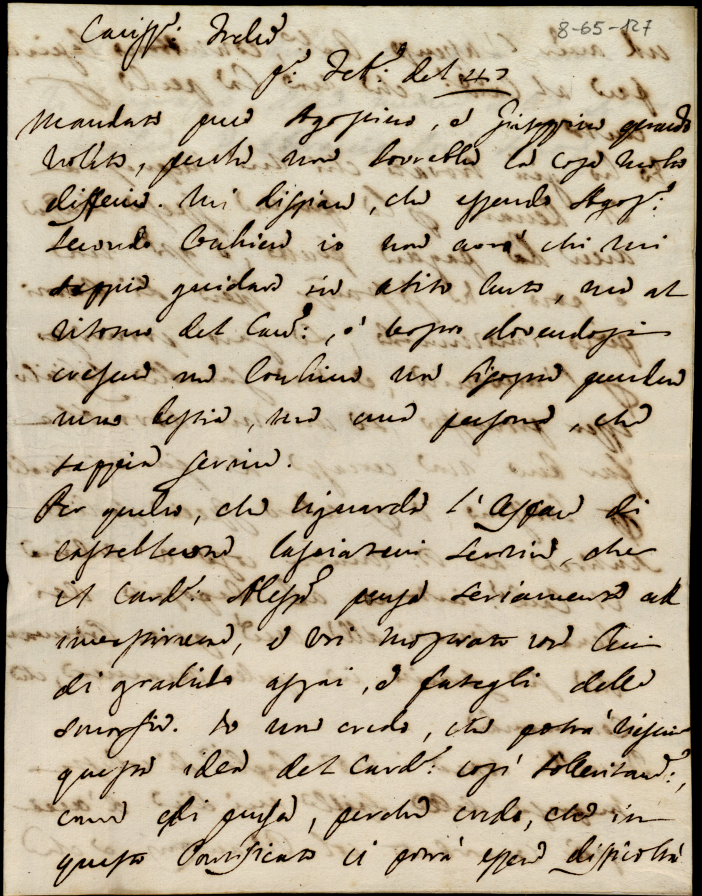 8-65-127
Cariss.º Frello
p.º Feb.º del 43
Mandato pure Agostino, e Giuseppino quando
volete, perche non dovrebbe la cosa molto
differire. Mi dispiace, che essendo Agos.º
secondo Cochiere io non avrò chi mi
sappia guidare in abito corto, ma al
ritorno del Card.:, e dovendosi
crescere un Cochiere non bisogna prender
una bestia, ma una persona, che
sappia servire.
Per quello, che riguarda l'affare di
Castelleone lasciatevi servire, che
il Card.e Aless.º pensa seriamente all
investirsene, e voi mostrate con lui
di gradirlo assai, e fategli delle
smorfie. Io non credo, che potrà riescir
questa idea del Card.e così sollecitam.e,
come egli pensa, perche credo, che in
questo Pontificato ci potrà essere difficoltà